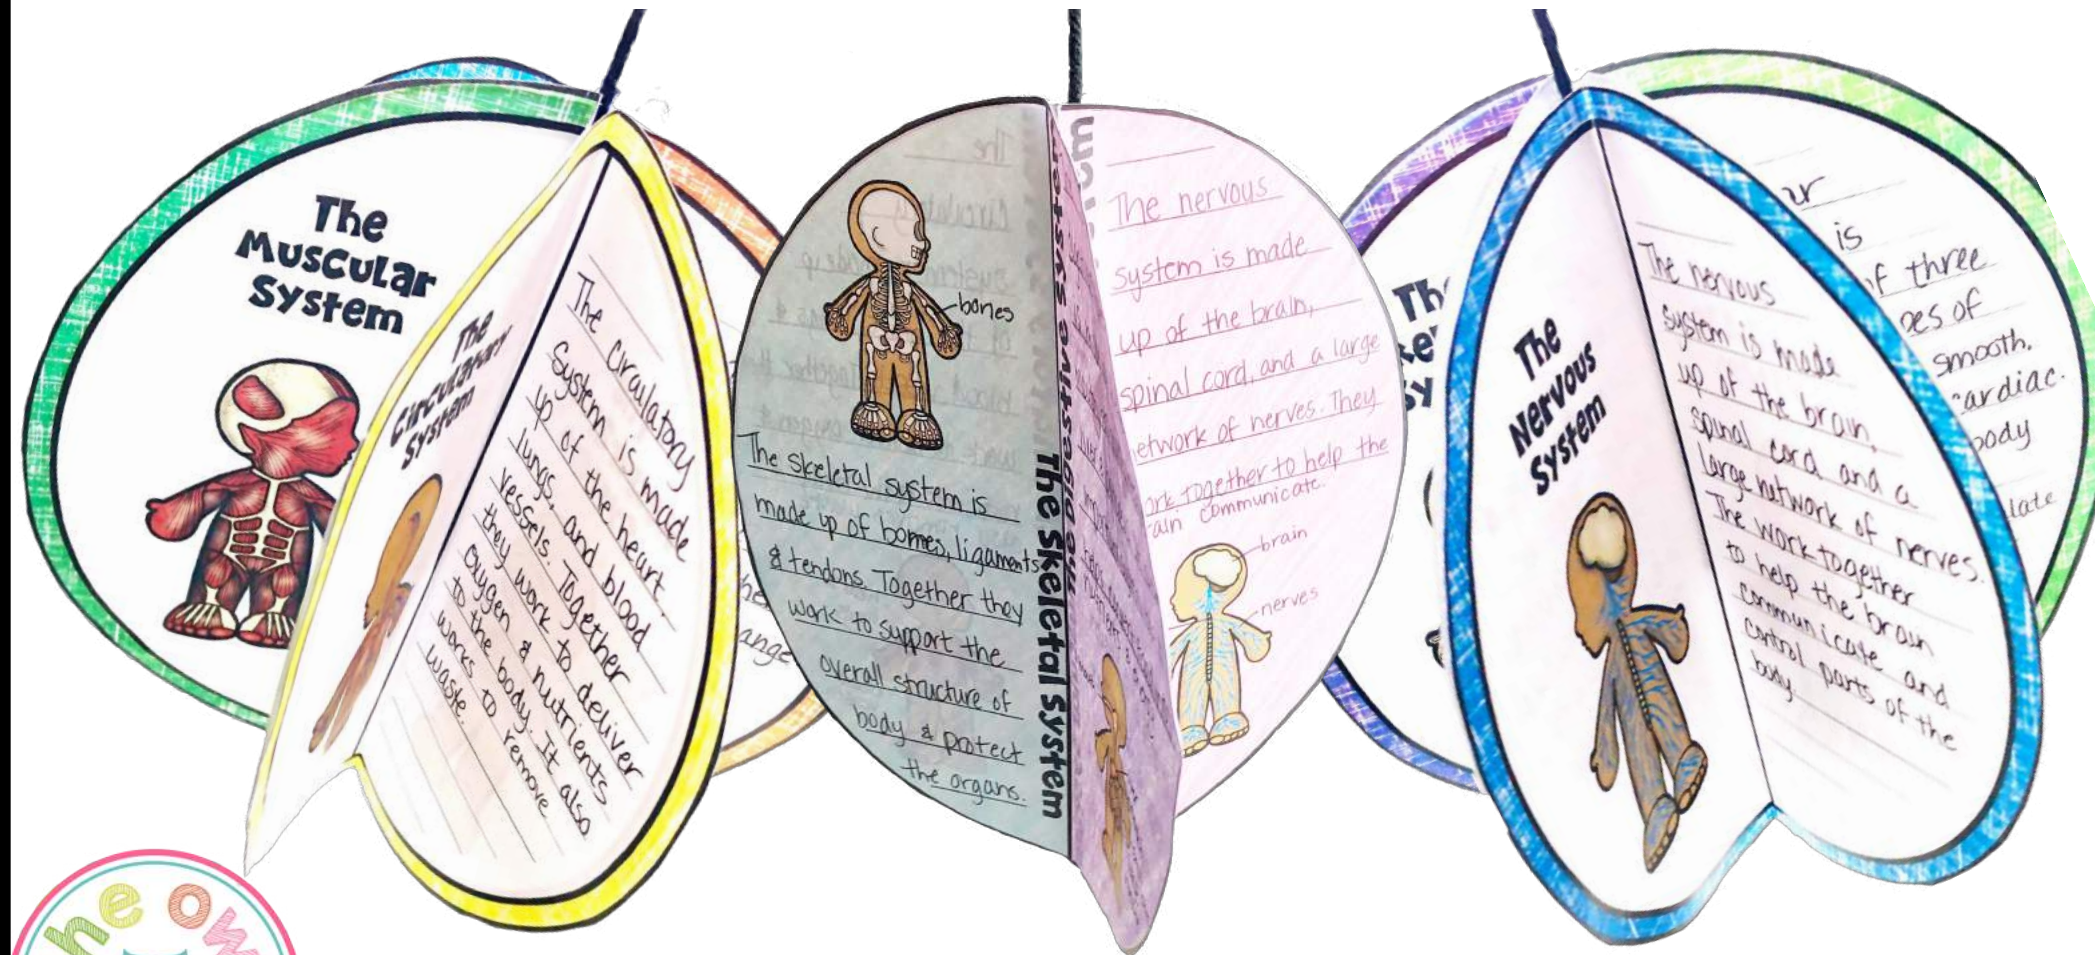 The
Muscular
System
The
Circulatory
System
The circulatory
System is made
up of the heart,
lungs, and blood
vessels. Together
they work to deliver
oxygen & nutrients
to the body. It also
works to remove
waste.
ange
bones
The skeletal system is
made up of bomes, ligaments
& tendons. Together they
work to support the
overall structure of
body & protect
the organs.
The Skeletal System
The Digestive System
The nervous
system is made
up of the brain,
spinal cord, and a large
etwork of nerves. They
ork together to help the
ain communicate.
brain
nerves
Th
ke
Sy
The
Nervous
System
The nervous
system is made
up of the brain,
spinal cord, and a
large network of nerves.
The work together
to help the brain
communicate and
control parts of the
body
ar
is
of three
pes of
smooth.
cardiac.
body
late
he ow